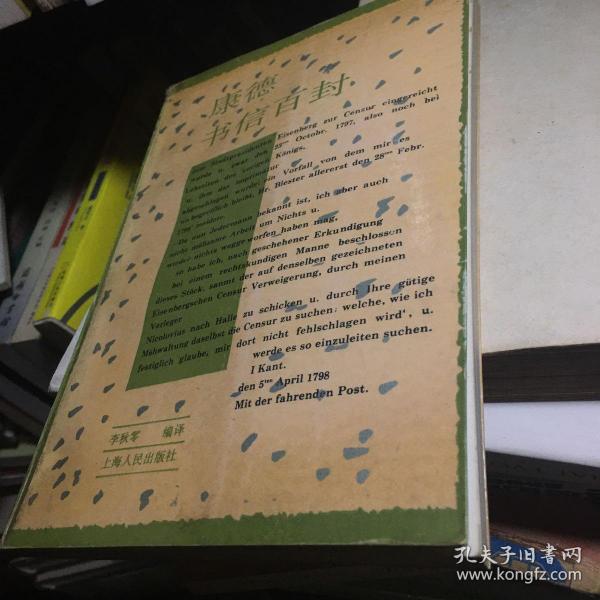 康德
书信百封
Stadtpräsidenten Eisenberg zur Censur eingereicht
wurde u. zwar den 23sten Octobr. 1797, also noch bei
Lebzeiten des vorigen Königs,
u. ihm das Imprimatur
abgeschlagen wurde; ein Vorfall von dem mir es
begreiflich bleibt, Hr. Biester allererst den 28sten Febr.
1798
Da nun Jedermann bekannt ist, ich aber auch
nicht müßsame Arbeit um Nichts u.
wieder nichts weggeworfen haben mag,
so habe ich, nach geschehener Erkundigung
bei einem rechtskundigen Manne beschlossen
dieses Stück, sammt der auf denselben gezeichneten
Eisenbergschen Censur Verweigerung, durch meinen
Verleger
Nicolovius nach Halle zu schicken u. durch Ihre gütige
Mühwaltung daselbst die Censur zu suchen; welche, wie ich
festiglich glaube, mir dort nicht fehlschlagen wird', u.
werde es so einzuleiten suchen.
I Kant.
den 5ten April 1798
Mit der fahrenden Post.
李秋零 编译
上海人民出版社
孔夫子旧书网
www.kongfz.com